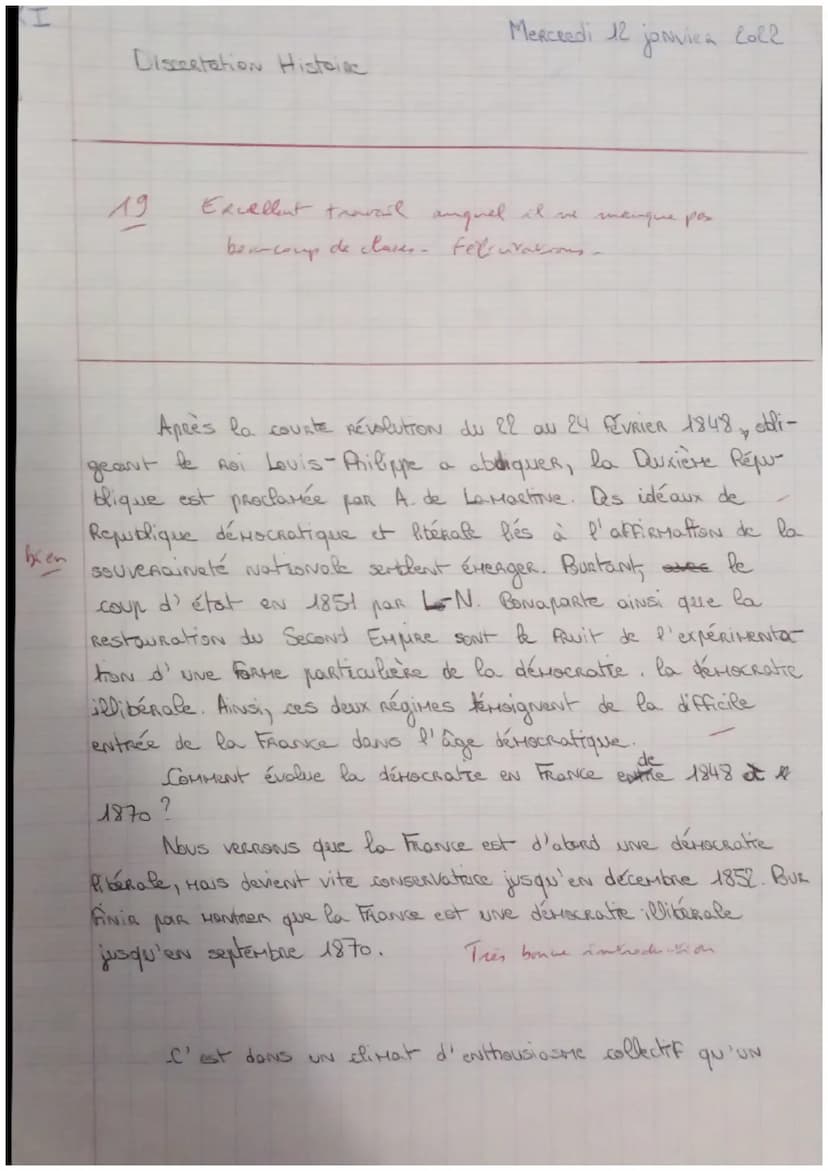 I
Mercredi 12 janvier 2022
Dissertation Histoire
19 Excellent travail auquel il ne manque pas
beaucoup de choses - Félicitations -
Après la courte révolution du 22 au 24 février 1848, obli-
geant le roi Louis-Philippe a abdiquer, la Duxième Répu-
blique est proclamée par A. de Lamartine. Des idéaux de
République démocratique et libérale liés à l'affirmation de la
bien
souveraineté nationale semblent émerger. Pourtant, avec le
coup d'état en 1851 par L-N. Bonaparte ainsi que la
restauration du Second Empire sont le fruit de l'expérimenta-
tion d'une forme particulière de la démocratie, la démocratie
illibérale. Ainsi, ces deux régimes témoignent de la difficile
entrée de la France dans l'âge démocratique.
Comment évolue la démocratie en France de 1848 à
1870 ?
Nous verrons que la France est d'abord une démocratie
libérale, mais devient vite conservatrice jusqu'en décembre 1852. Pour
finir par montrer que la France est une démocratie illibérale
jusqu'en septembre 1870. Très bonne introduction
C'est dans un climat d'enthousiasme collectif qu'un